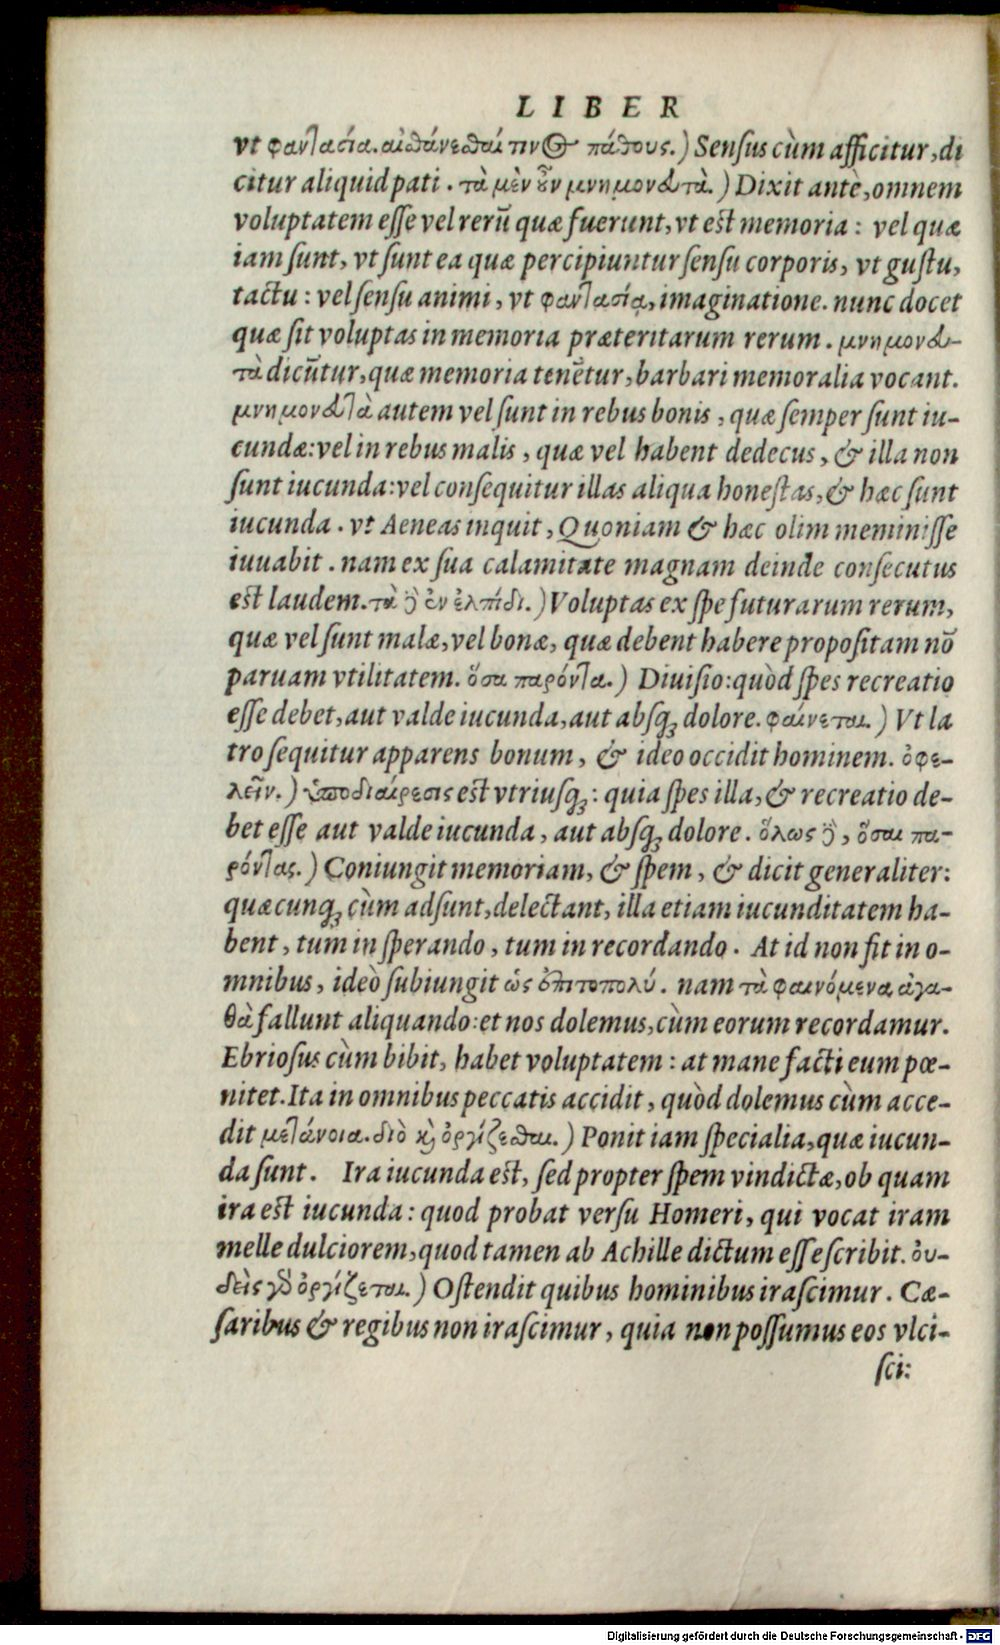 LIBER
vt φαντασία. αἰσθάνεσθαί τινος πάθους.) Sensus cùm afficitur, di
citur aliquid pati. τὰ μὲν οὖν μνημονευτὰ.) Dixit antè, omnem
voluptatem esse vel rerū quæ fuerunt, vt est memoria: vel quæ
iam sunt, vt sunt ea quæ percipiuntur sensu corporis, vt gustu,
tactu: vel sensu animi, vt φαντασία, imaginatione. nunc docet
quæ sit voluptas in memoria præteritarum rerum. μνημονευ-
τὰ dicūtur, quæ memoria tenētur, barbari memoralia vocant.
μνημονευτὰ autem vel sunt in rebus bonis, quæ semper sunt iu-
cundæ: vel in rebus malis, quæ vel habent dedecus, & illa non
sunt iucunda: vel consequitur illas aliqua honestas, & hæc sunt
iucunda. vt Aeneas inquit, Quoniam & hæc olim meminisse
iuuabit. nam ex sua calamitate magnam deinde consecutus
est laudem. τὰ δὲ ἐν ἐλπίδι.) Voluptas ex spe futurarum rerum,
quæ vel sunt malæ, vel bonæ, quæ debent habere propositam nō
paruam vtilitatem. ὅσα παρόντα.) Diuisio: quòd spes recreatio
esse debet, aut valde iucunda, aut absq; dolore. φαίνεται.) Vt la
tro sequitur apparens bonum, & ideo occidit hominem. ὀφε-
λεῖν.) ὑποδιαίρεσις est vtriusq;: quia spes illa, & recreatio de-
bet esse aut valde iucunda, aut absq; dolore. ὅλως δὲ, ὅσαι πα-
ρόντας.) Coniungit memoriam, & spem, & dicit generaliter:
quæcunq; cùm adsunt, delectant, illa etiam iucunditatem ha-
bent, tum in sperando, tum in recordando. At id non fit in o-
mnibus, ideò subiungit ὡς ἐπιτοπολύ. nam τὰ φαινόμενα ἀγα-
θὰ fallunt aliquando: et nos dolemus, cùm eorum recordamur.
Ebriosus cùm bibit, habet voluptatem: at mane facti eum pœ-
nitet. Ita in omnibus peccatis accidit, quòd dolemus cùm acce-
dit μετάνοια. διὸ καὶ ὀργίζεσθαι.) Ponit iam specialia, quæ iucun-
da sunt. Ira iucunda est, sed propter spem vindictæ, ob quam
ira est iucunda: quod probat versu Homeri, qui vocat iram
melle dulciorem, quod tamen ab Achille dictum esse scribit. οὐ-
δεὶς γὰρ ὀργίζεται.) Ostendit quibus hominibus irascimur. Cæ-
saribus & regibus non irascimur, quia non possumus eos vlci-
sci:
Digitalisierung gefördert durch die Deutsche Forschungsgemeinschaft - DFG